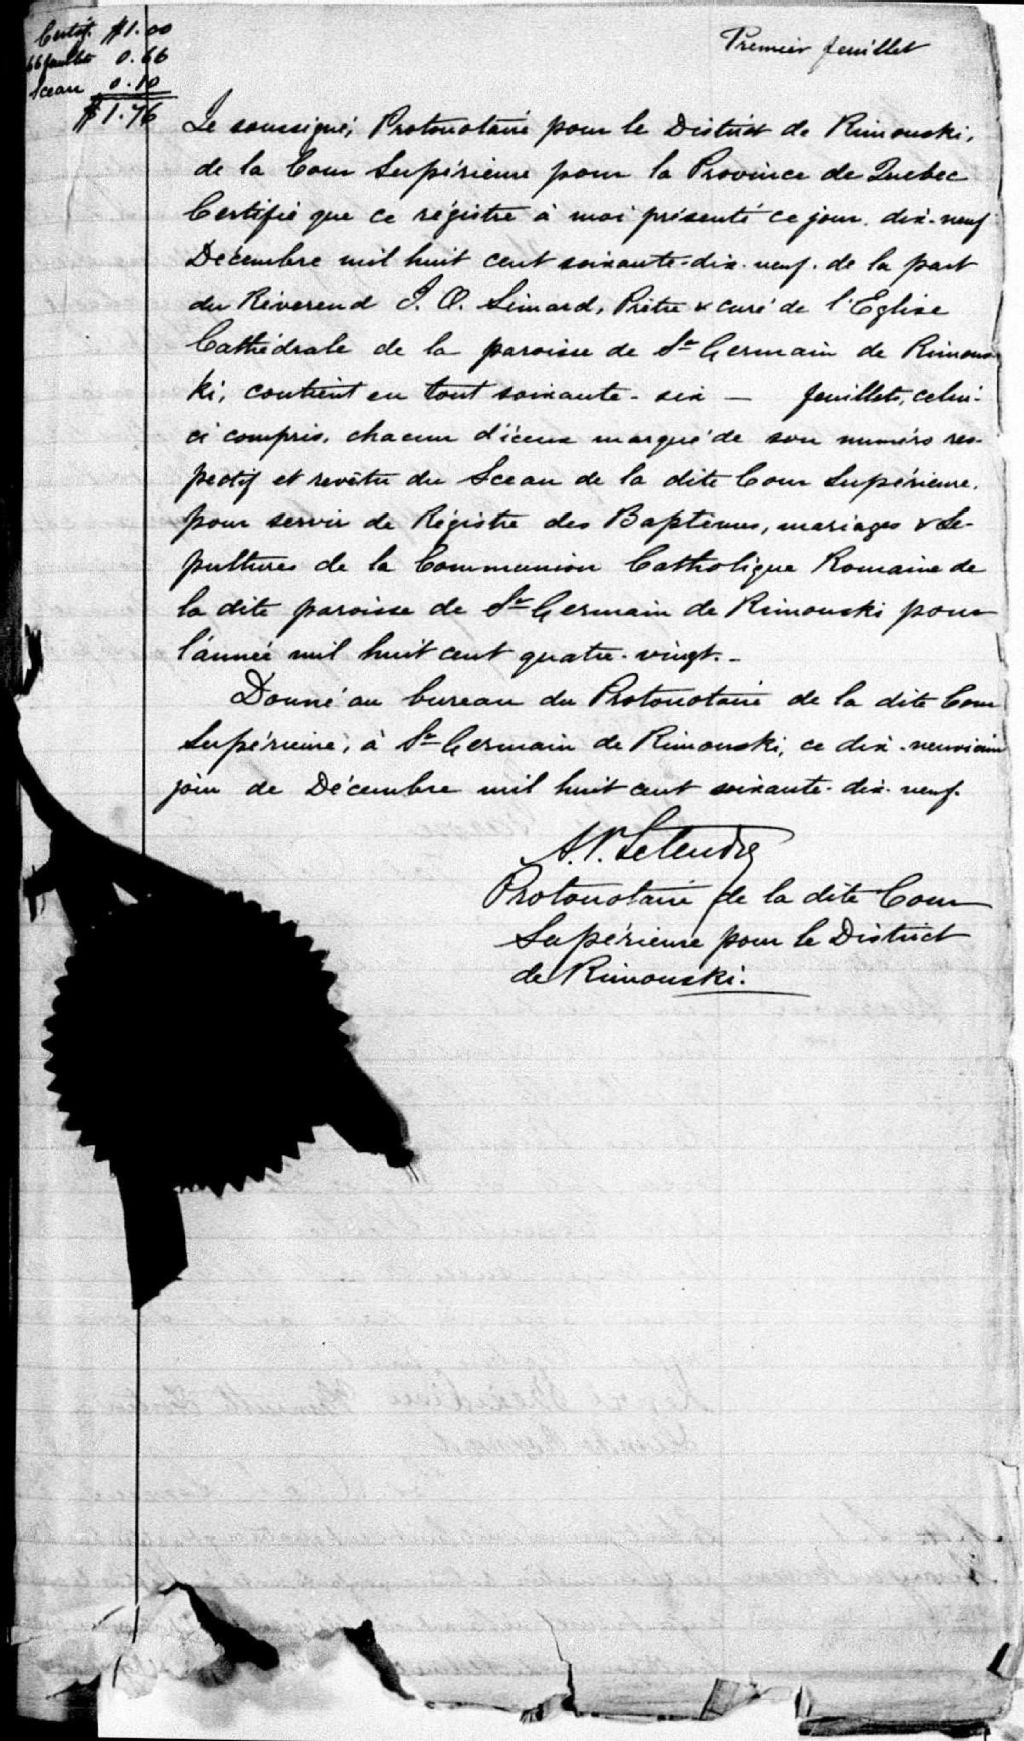 Certif. $1.00
66 feuillets 0.66
Sceau 0.10
$1.76
Premier feuillet
Je soussigné, Protonotaire pour le District de Rimouski,
de la Cour Supérieure pour la Province de Quebec
Certifie que ce régistre à moi présenté ce jour dix-neuf
Décembre mil huit cent soixante-dix-neuf. de la part
du Réverend J. O. Simard, Prêtre & curé de l'Eglise
Cathédrale de la paroisse de St Germain de Rimous
ki, contient en tout soixante-six — feuillets, celui-
ci compris, chacun d'iceux marqué de son numéro res-
pectif et revêtu du Sceau de la dite Cour Supérieure,
pour servir de Régistre des Baptêmes, mariages & Sé-
pultures de la Communion Catholique Romaine de
la dite paroisse de St Germain de Rimouski pour
l'année mil huit cent quatre-vingt.-
Donné au bureau du Protonotaire de la dite Cour
Supérieure, à St Germain de Rimouski, ce dix-neuvième
jour de Décembre mil huit cent soixante-dix-neuf.
A.P. Letendre
Protonotaire de la dite Cour
Supérieure pour le District
de Rimouski.